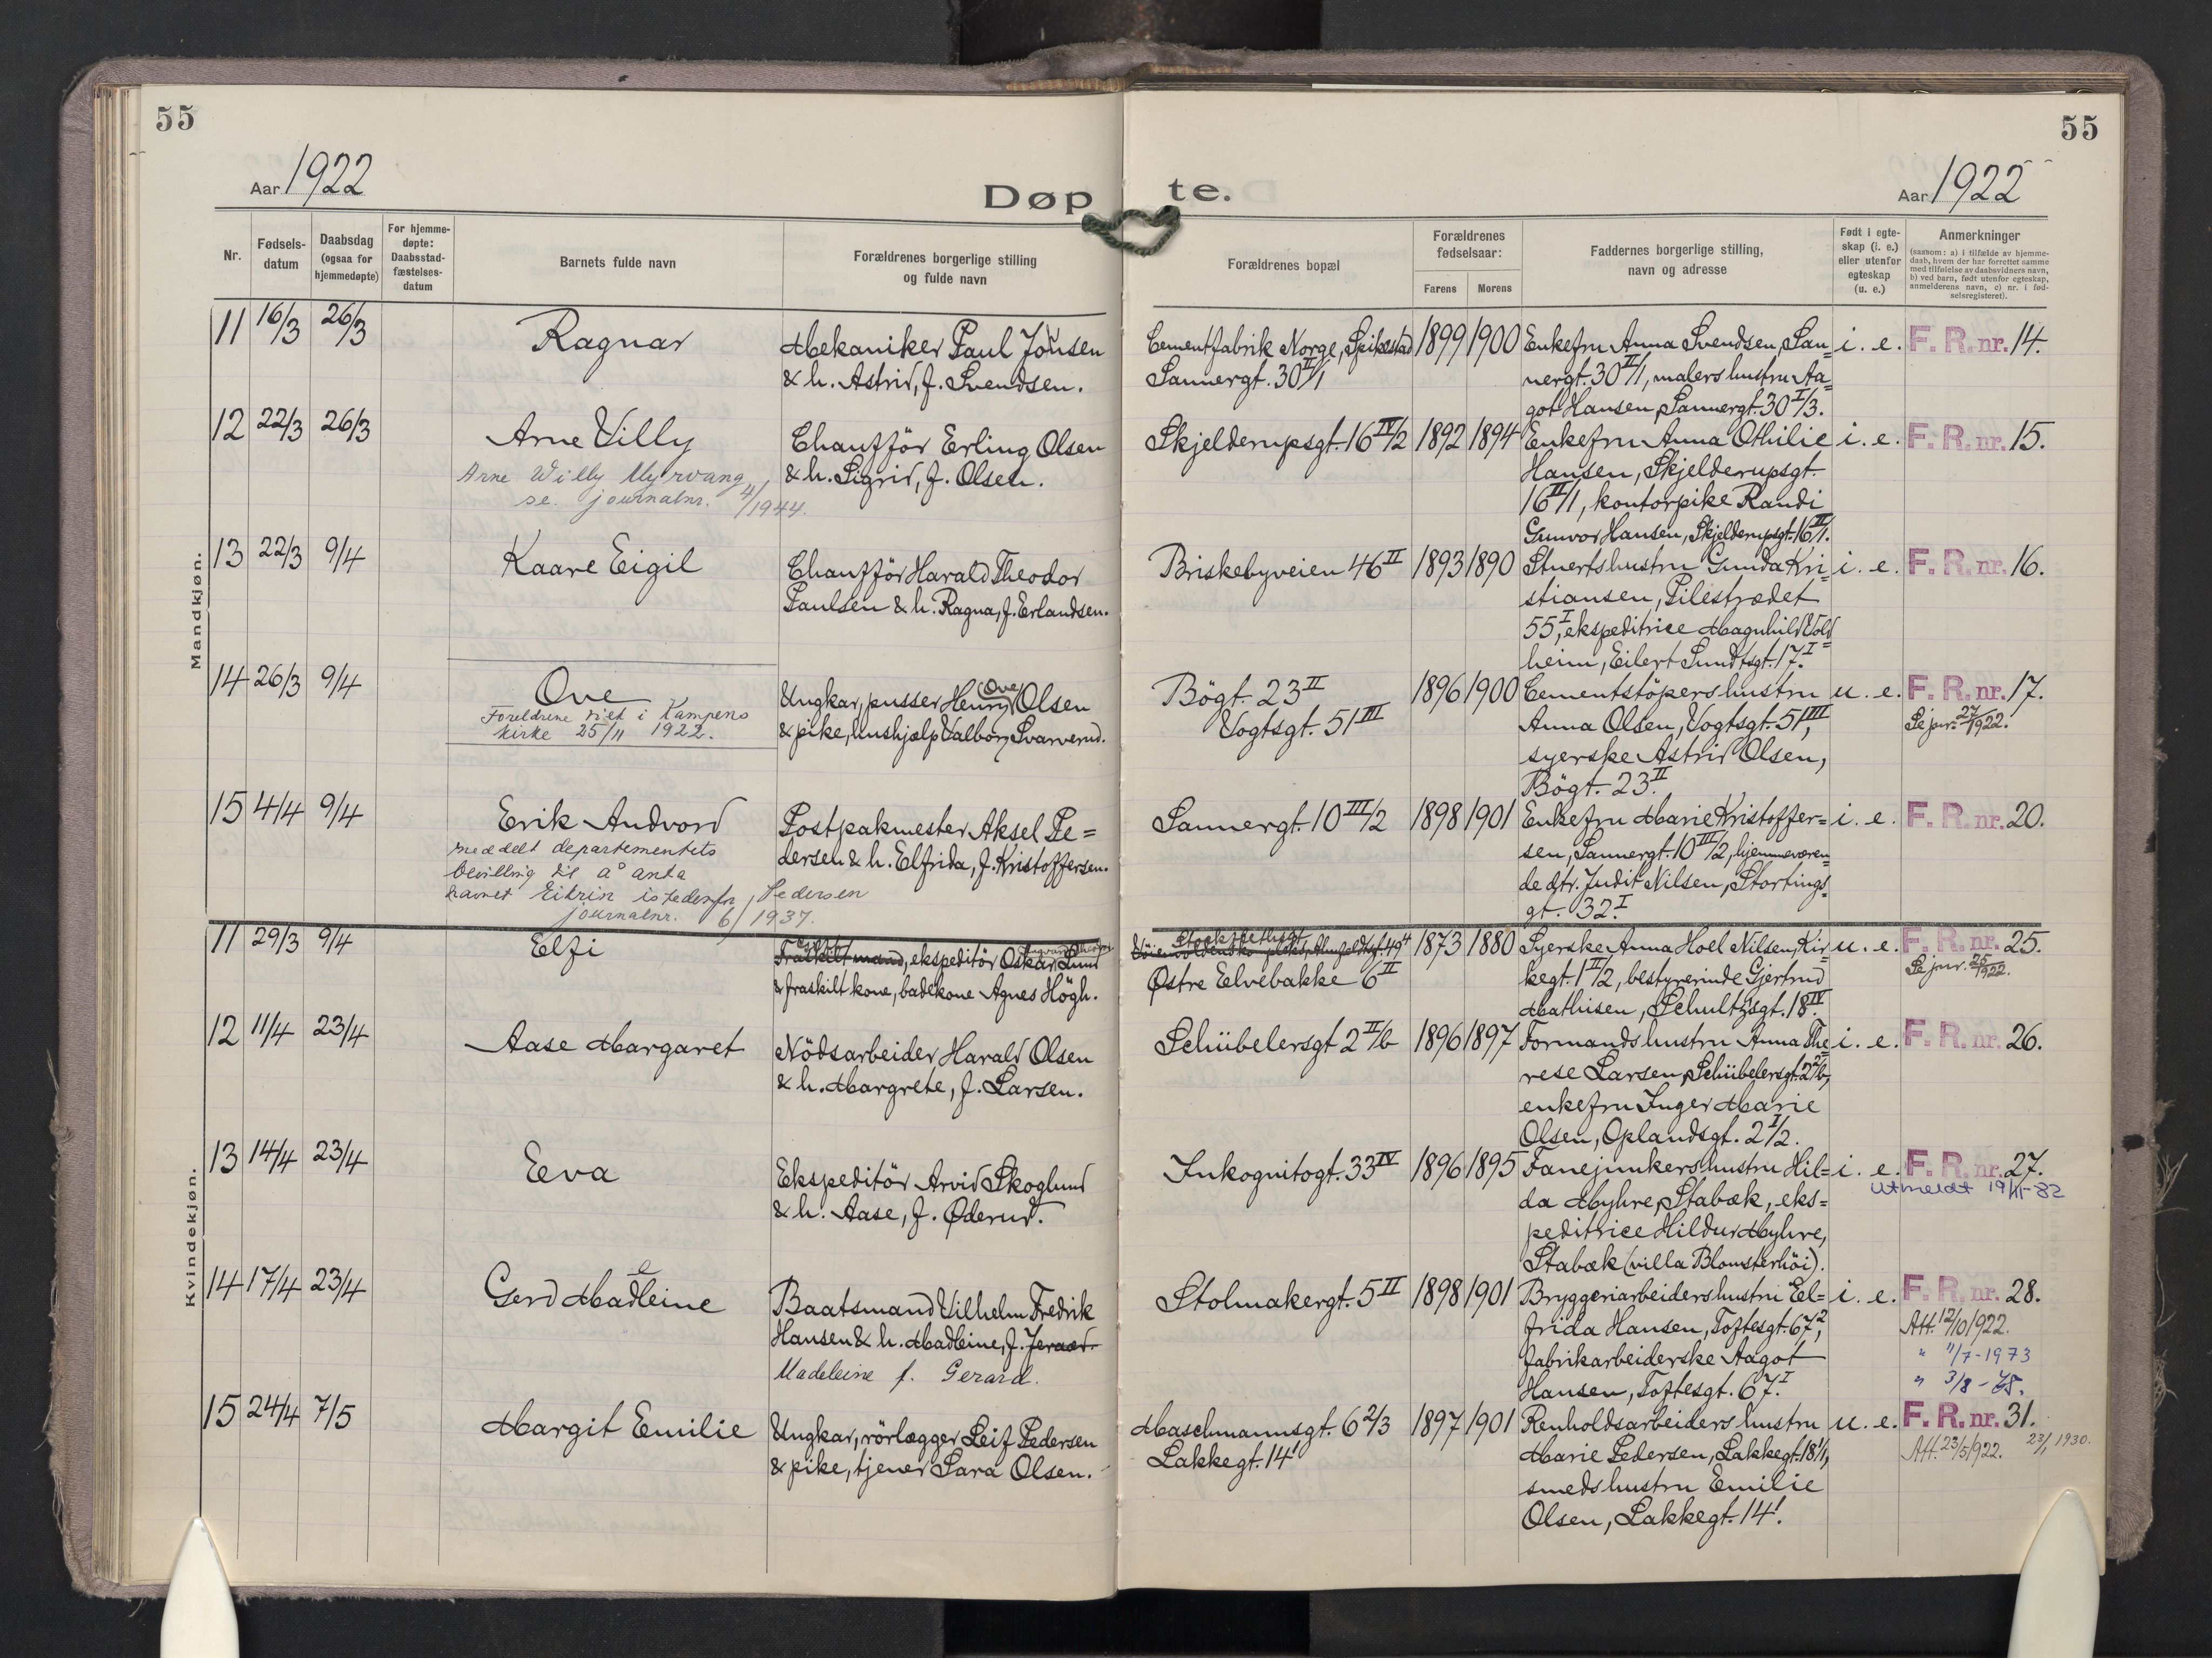 55
55
Aar 1922
Døp te.
Aar 1922
Nr.
Fødsels-
datum
Daabsdag
(ogsaa for
hjemmedøpte)
For hjemme-
døpte:
Daabsstad-
fæstelses-
datum
Barnets fulde navn
Forældrenes borgerlige stilling
og fulde navn
Forældrenes bopæl
Forældrenes
fødselsaar:
Farens
Morens
Faddernes borgerlige stilling,
navn og adresse
Født i egte-
skap (i. e.)
eller utenfor
egteskap
(u. e.)
Anmerkninger
(saasom: a) i tilfælde av hjemme-
daab, hvem der har forrettet samme
med tilføielse av daabsvidners navn,
b) ved barn, født utenfor egteskap,
anmelderens navn, c) nr. i fød-
selsregisteret).
Mandkjøn.
11 16/3 26/3 Ragnar
Mekaniker Paul Jonsen
& h. Astrid, f. Svendsen.
Cementfabrik Norge, Spikestad
Sannergt. 30 II/1
1899 1900
Enkefru Anna Svendsen, San=
nergt. 30 II/1, malers hustru Aa=
got Hansen, Sannergt. 30 I/3.
i. e. F. R. nr. 14.
12 22/3 26/3 Arne Villy
Arne Willy Myrvang
se. journalnr. 4/1944.
Chaufför Erling Olsen
& h. Sigrid, f. Olsen.
Skjelderupsgt. 16 IV/2
1892 1894
Enkefru Anna Othilie
Hansen, Skjelderupsgt.
16 II/1, kontorpike Randi
Gunvor Hansen, Skjelderupsgt. 16 II/1.
i. e. F. R. nr. 15.
13 22/3 9/4 Kaare Eigil
Chaufför Harald Theodor
Paulsen & h. Ragna, f. Erlandsen.
Briskebyveien 46 II
1893 1890
Stuertshustru Gunda Kri=
stiansen, Pilestrædet
55 I, ekspeditrice Magnhild Vold=
heim, Eilert Sundtsgt. 17 I.
i. e. F. R. nr. 16.
14 26/3 9/4 Ove
Foreldrene viet i Kampens
kirke 25/11 1922.
Ungkar, pusser Henry (Ove) Olsen
& pike, hushjælp Valborg Svarverud.
Bögt. 23 II
Vogtsgt. 51 III
1896 1900
Cementstöpers hustru
Anna Olsen, Vogtsgt. 51 III,
syerske Astrid Olsen,
Bögt. 23 II.
u. e. F. R. nr. 17.
Se jnr. 27/1922.
15 4/4 9/4 Erik Andvord
meddelt departementets
bevilling til å anta
navnet Eitrin istedenfor Pedersen
journalnr. 6/1937.
Postpakmester Aksel Pe=
dersen & h. Elfrida, f. Kristoffersen.
Sannergt. 10 III/2
1898 1901
Enkefru Marie Kristoffer=
sen, Sannergt. 10 III/2, hjemmeværen=
de dtr. Judit Nilsen, Stortings=
gt. 32 I.
i. e. F. R. nr. 20.
Kvindekjøn.
11 29/3 9/4 Elfi
Fraskilt mand, ekspeditör Oskar Lund
& fraskilt kone, badekone Agnes Högh.
Østre Elvebakke 6 II
1873 1880
Syerske Anna Hoel Nilsen, Kir=
kegt. 1 II/2, bestyrerinde Gjertrud
Mathisen, Schultzsgt. 18 IV.
u. e. F. R. nr. 25.
Se jnr. 25/1922.
12 11/4 23/4 Aase Margaret
Nödsarbeider Harald Olsen
& h. Margrete, f. Larsen.
Schübelersgt 2 II/b
1896 1897
Formandshustru Anna The=
rese Larsen, Schübelersgt. 2 2/b,
enkefru Inger Marie
Olsen, Oplandsgt. 2 I/2.
i. e. F. R. nr. 26.
13 14/4 23/4 Eva
Ekspeditör Arvid Skoglund
& h. Aase, f. Øderud.
Inkognitogt. 33 IV
1896 1895
Fanejunkers hustru Hil=
da Myhre, Stabæk, eks=
peditrice Hildur Myhre,
Stabæk (villa Blomsterhöi).
i. e. F. R. nr. 27.
Utmeldt 19/11-82
14 17/4 23/4 Gerd Madleine
e
Baatsmand Vilhelm Fredrik
Hansen & h. Madleine, f. Jeraad.
Madeleine f. Gerard.
Stolmakergt. 5 II
1898 1901
Bryggeriarbeiders hustru El=
frida Hansen, Toftesgt. 67 2,
fabrikarbeiderske Aagot
Hansen, Toftesgt. 67 I.
i. e. F. R. nr. 28.
Att. 12/10 1922.
" 11/7-1973
" 3/8-78.
15 24/4 7/5 Margit Emilie
Ungkar, rörlægger Leif Pedersen
& pike, tjener Sara Olsen.
Maschmannsgt. 6 2/3
Lakkegt. 14 1
1897 1901
Renholdsarbeiders hustru
Marie Pedersen, Lakkegt. 18 1/1,
smedshustru Emilie
Olsen, Lakkegt. 14 1.
u. e. F. R. nr. 31.
Att. 23/5 1922. 23/1 1930.